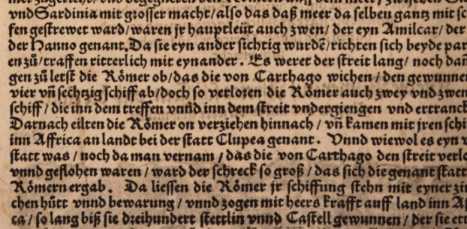 vnd Sardinia mit grosser macht / also das daß meer da selben gantz mit sc
fen gestrewet ward / waren jr hauptleüt auch zwen / der eyn Amilcar / der
der Hanno genant. Da sie eyn ander sichtig wurdē / richten sich beyde par
en zů / traffen ritterlich mit eynander. Es weret der streit lang / noch dañ
gen zů letst die Römer ob / das die von Carthago wichen / den gewunne
vier vñ sechtzig schiff ab / doch so verloren die Römer auch zwey vnd zwen
schiff / die inn dem treffen vnnd inn dem streit vndergiengen vnd ertranck
Darnach eilten die Römer on verziehen hinnach / vñ kamen mit jren schif
inn Affrica an landt bei der statt Clupea genant. Vnnd wiewol es eyn v
statt was / noch da man vernam / das die von Carthago den streit verlo
vnnd geflohen waren / ward der schreck so groß / das sich die genant statt
Römern ergab. Da liessen die Römer jr schiffung stehn mit eyner zi
chen hütt vnnd bewarung / vnnd zogen mit heers krafft auff land inn A
ca / so lang biß sie dreihundert stettlin vnnd Castell gewunnen / der sie ett